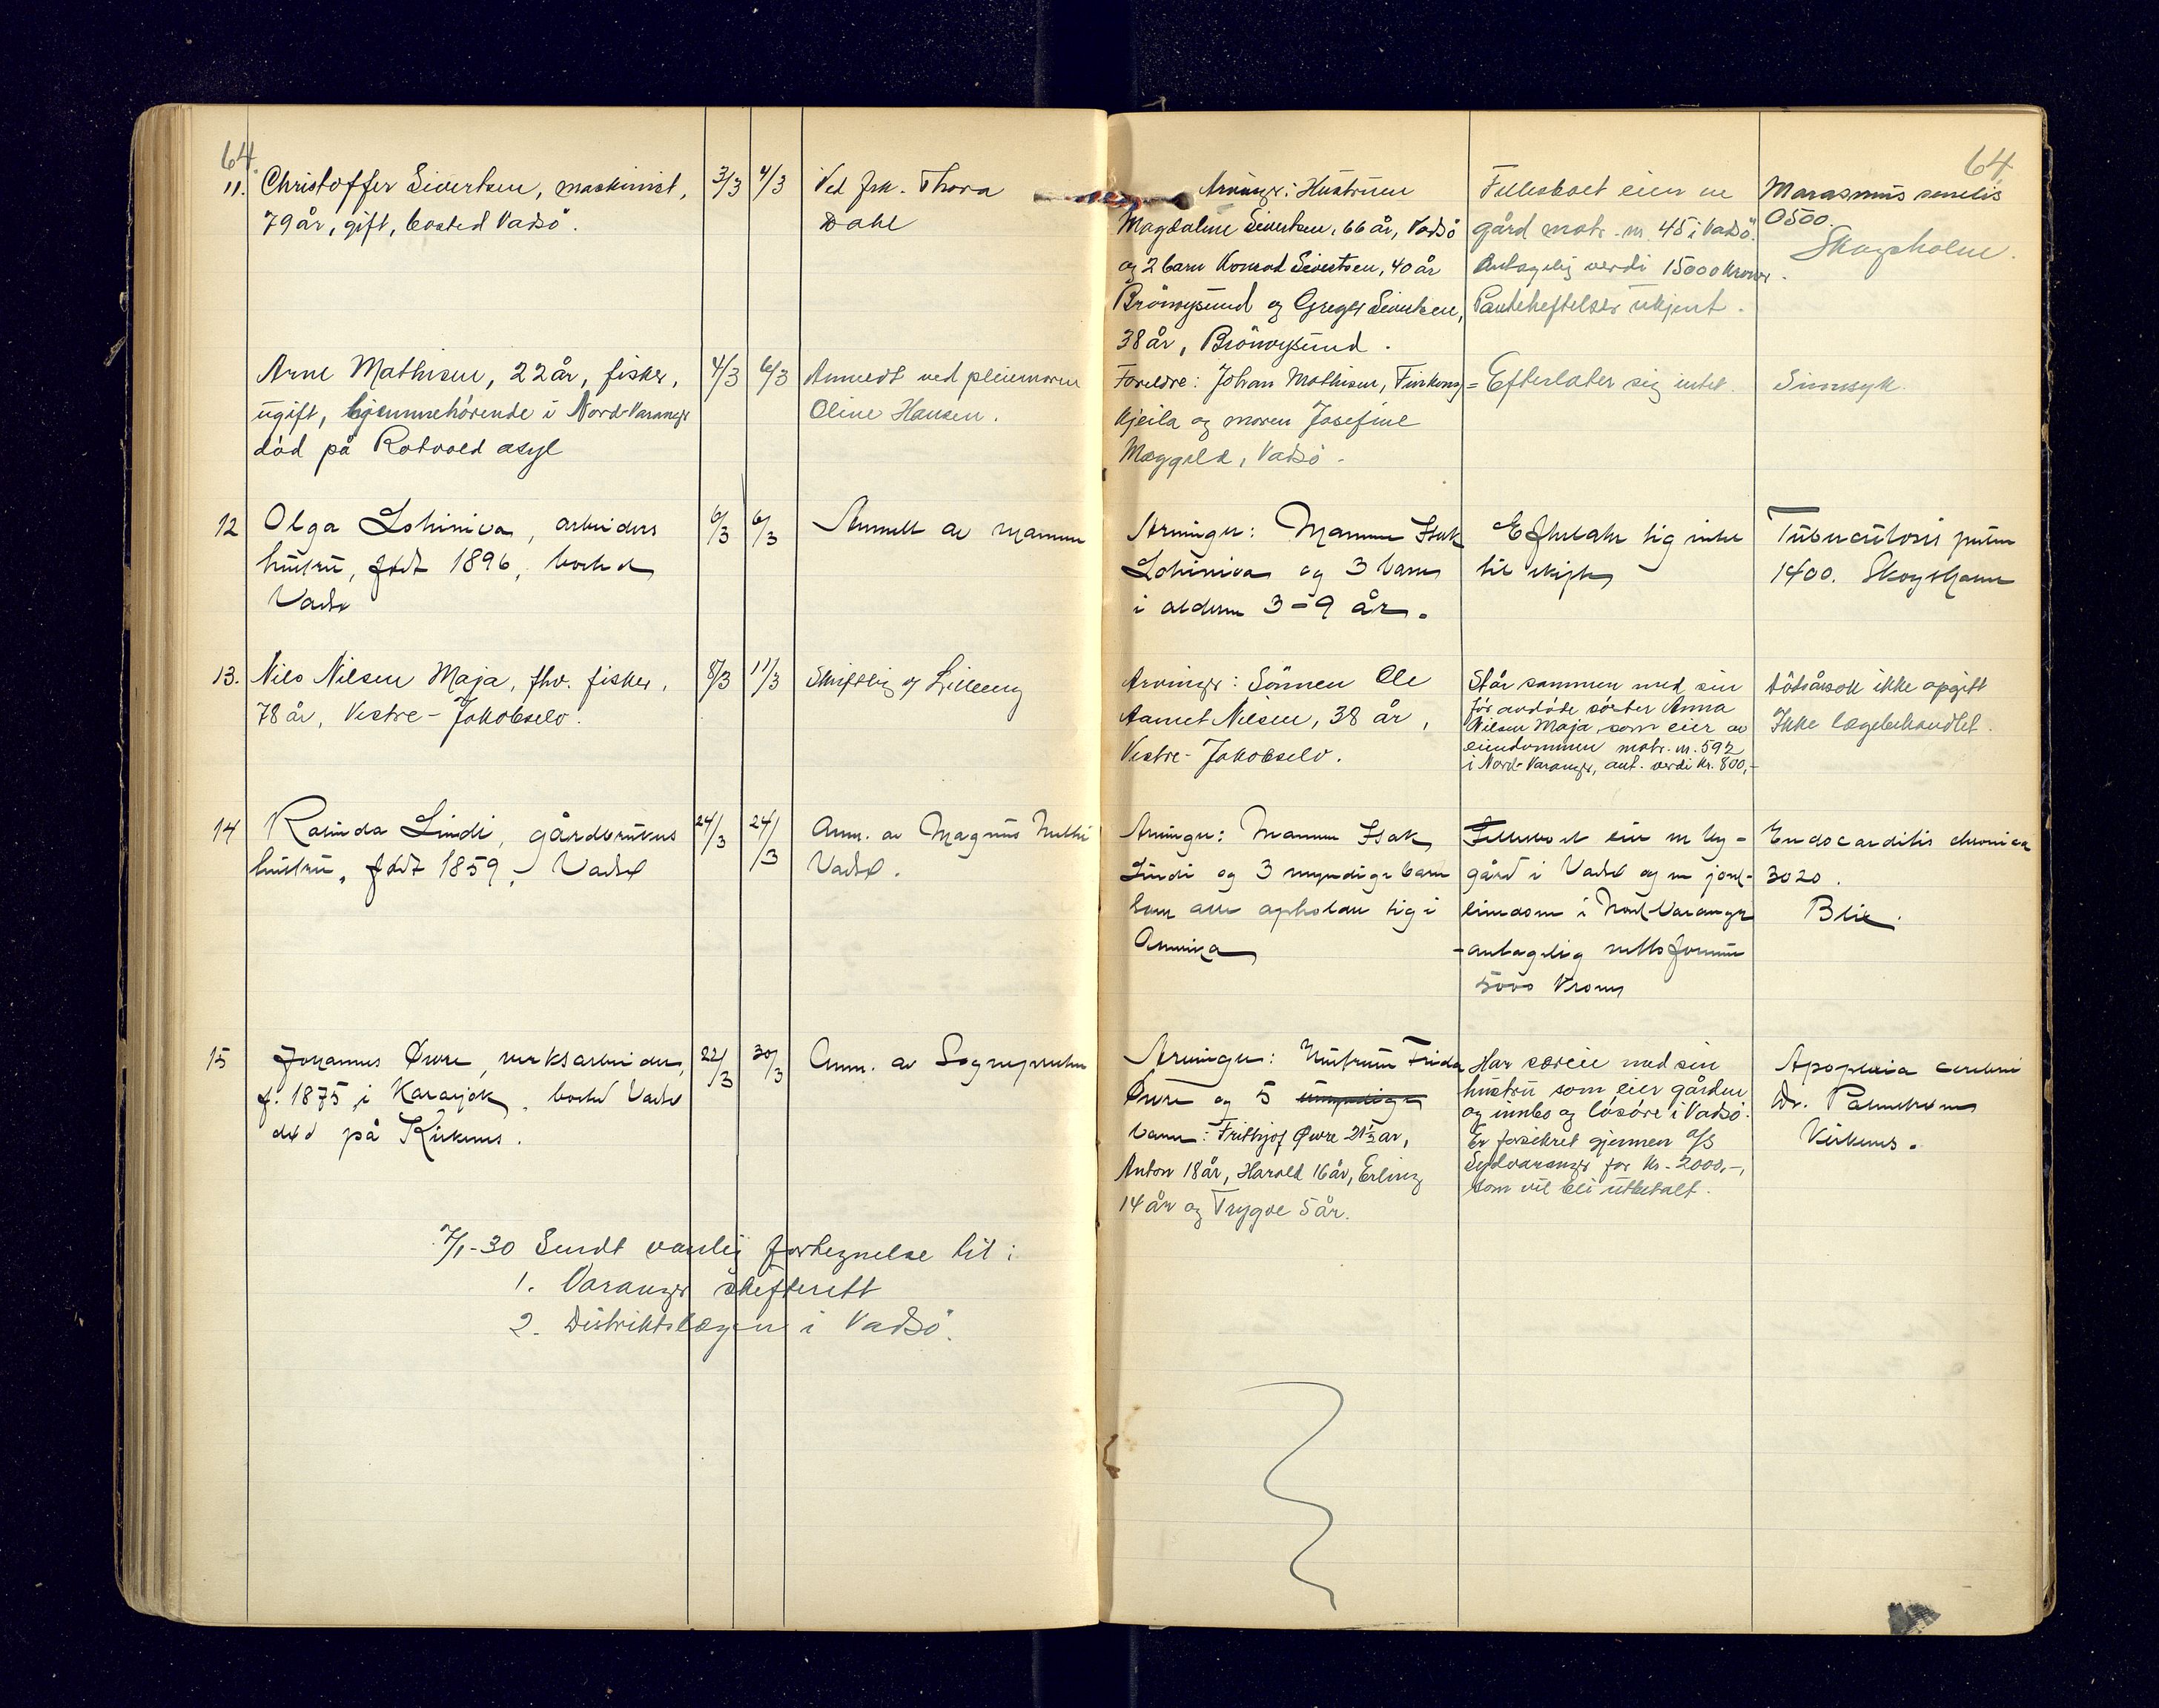 64.
11. Christoffer Sivertsen, maskinist, 3/3 4/3 Ved frk. Thora
79 år, gift, bosted Vadsö. Dahl
Arne Mathisen, 22 år, fisker, 4/3 6/3 Anmeldt ved pleiemoren
ugift, hjemmehörende i Nord-Varanger Oline Hansen.
död på Rotvold asyl
12 Olga Lohiniva, arbeiders 6/3 6/3 Anmelt av mannen
hustru, født 1896, bosted
Vadsø
13. Nils Nilsen Maja, fhv. fisker, 8/3 11/3 Skriftlig af
78 år, Vestre-Jakobselv.
14 Lindi, gårdbrukers 24/3 24/3 Anm. av Magnus
hustru, født 1859, Vadsø Vadsø.
15 Johannes Øvre, verksarbeider, 22/3 30/3 Anm. av Sognepresten
f. 1875 i Karasjok, bosted Vadsø
død på Kirkenes.
7/1-30 Sendt vanlig fortegnelse til:
1. Varanger skifterett
2. Distriktslægen i Vadsö.
64
Arvinger: Hustruen Fellesboet eier en Marasmus senilis
Magdaline Sivertsen, 66 år, Vadsö gård matr. nr. 45 i Vadsö. 0500.
og 2 barn Konrad Sivertsen, 40 år Antagelig verdi 15000 kroner. Skogsholm.
Brönnøysund og Sivertsen, Panteheftelser ukjent.
38 år, Brönnøysund.
Foreldre: Johan Mathisen, Finkong= Efterlater sig intet. Sinnsyk.
kjeila og moren Josefine
Vadsö.
Arvinger: Mannen Isak Efterlater sig intet Tuberculosis pulm
Lohiniva og 3 barn til skifte 1400. Skogsholm
i alderen 3-9 år.
Arvinger: Sönnen Ole Står sammen med sin Dödsårsak ikke opgitt
Aamet Nilsen, 38 år, för avdöde söster Anna
Nilsen Maja, som eier av Ikke lægebehandlet.
Vestre-Jakobselv. eiendommen matr. nr. 592
i Nord-Varanger, ant. verdi kr. 800,-
Arvinger: Mannen Isak Fellesboet eier en by- Endocarditis chronica
Lindi og 3 myndige barn gård i Vadsø og en jord- 3020.
som alle opholder sig i eiendom i Nord-Varanger Blix.
Amerika - antagelig netto formue
5000 Kroner
Arvinger: Hustruen Frida Har særeie med sin Apoplexia cerebri
Øvre og 5 umyndige hustru som eier gården
og innbo og lösöre i Vadsö. Dr. Palmstrøm
barn: Frithjof Øvre 21½ år, Er forsikret gjennem A/S Kirkenes.
Anton 18 år, Harald 16 år, Erling Sydvaranger for kr. 2000,-,
14 år og Trygve 5 år. som vil bli utbetalt.